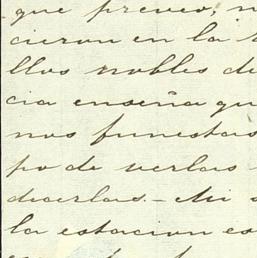 que preveo, n
cieron en la
llos nobles de
cia enseña qu
nos funestas
po de verlas
decerlas.- Mi
la estacion es